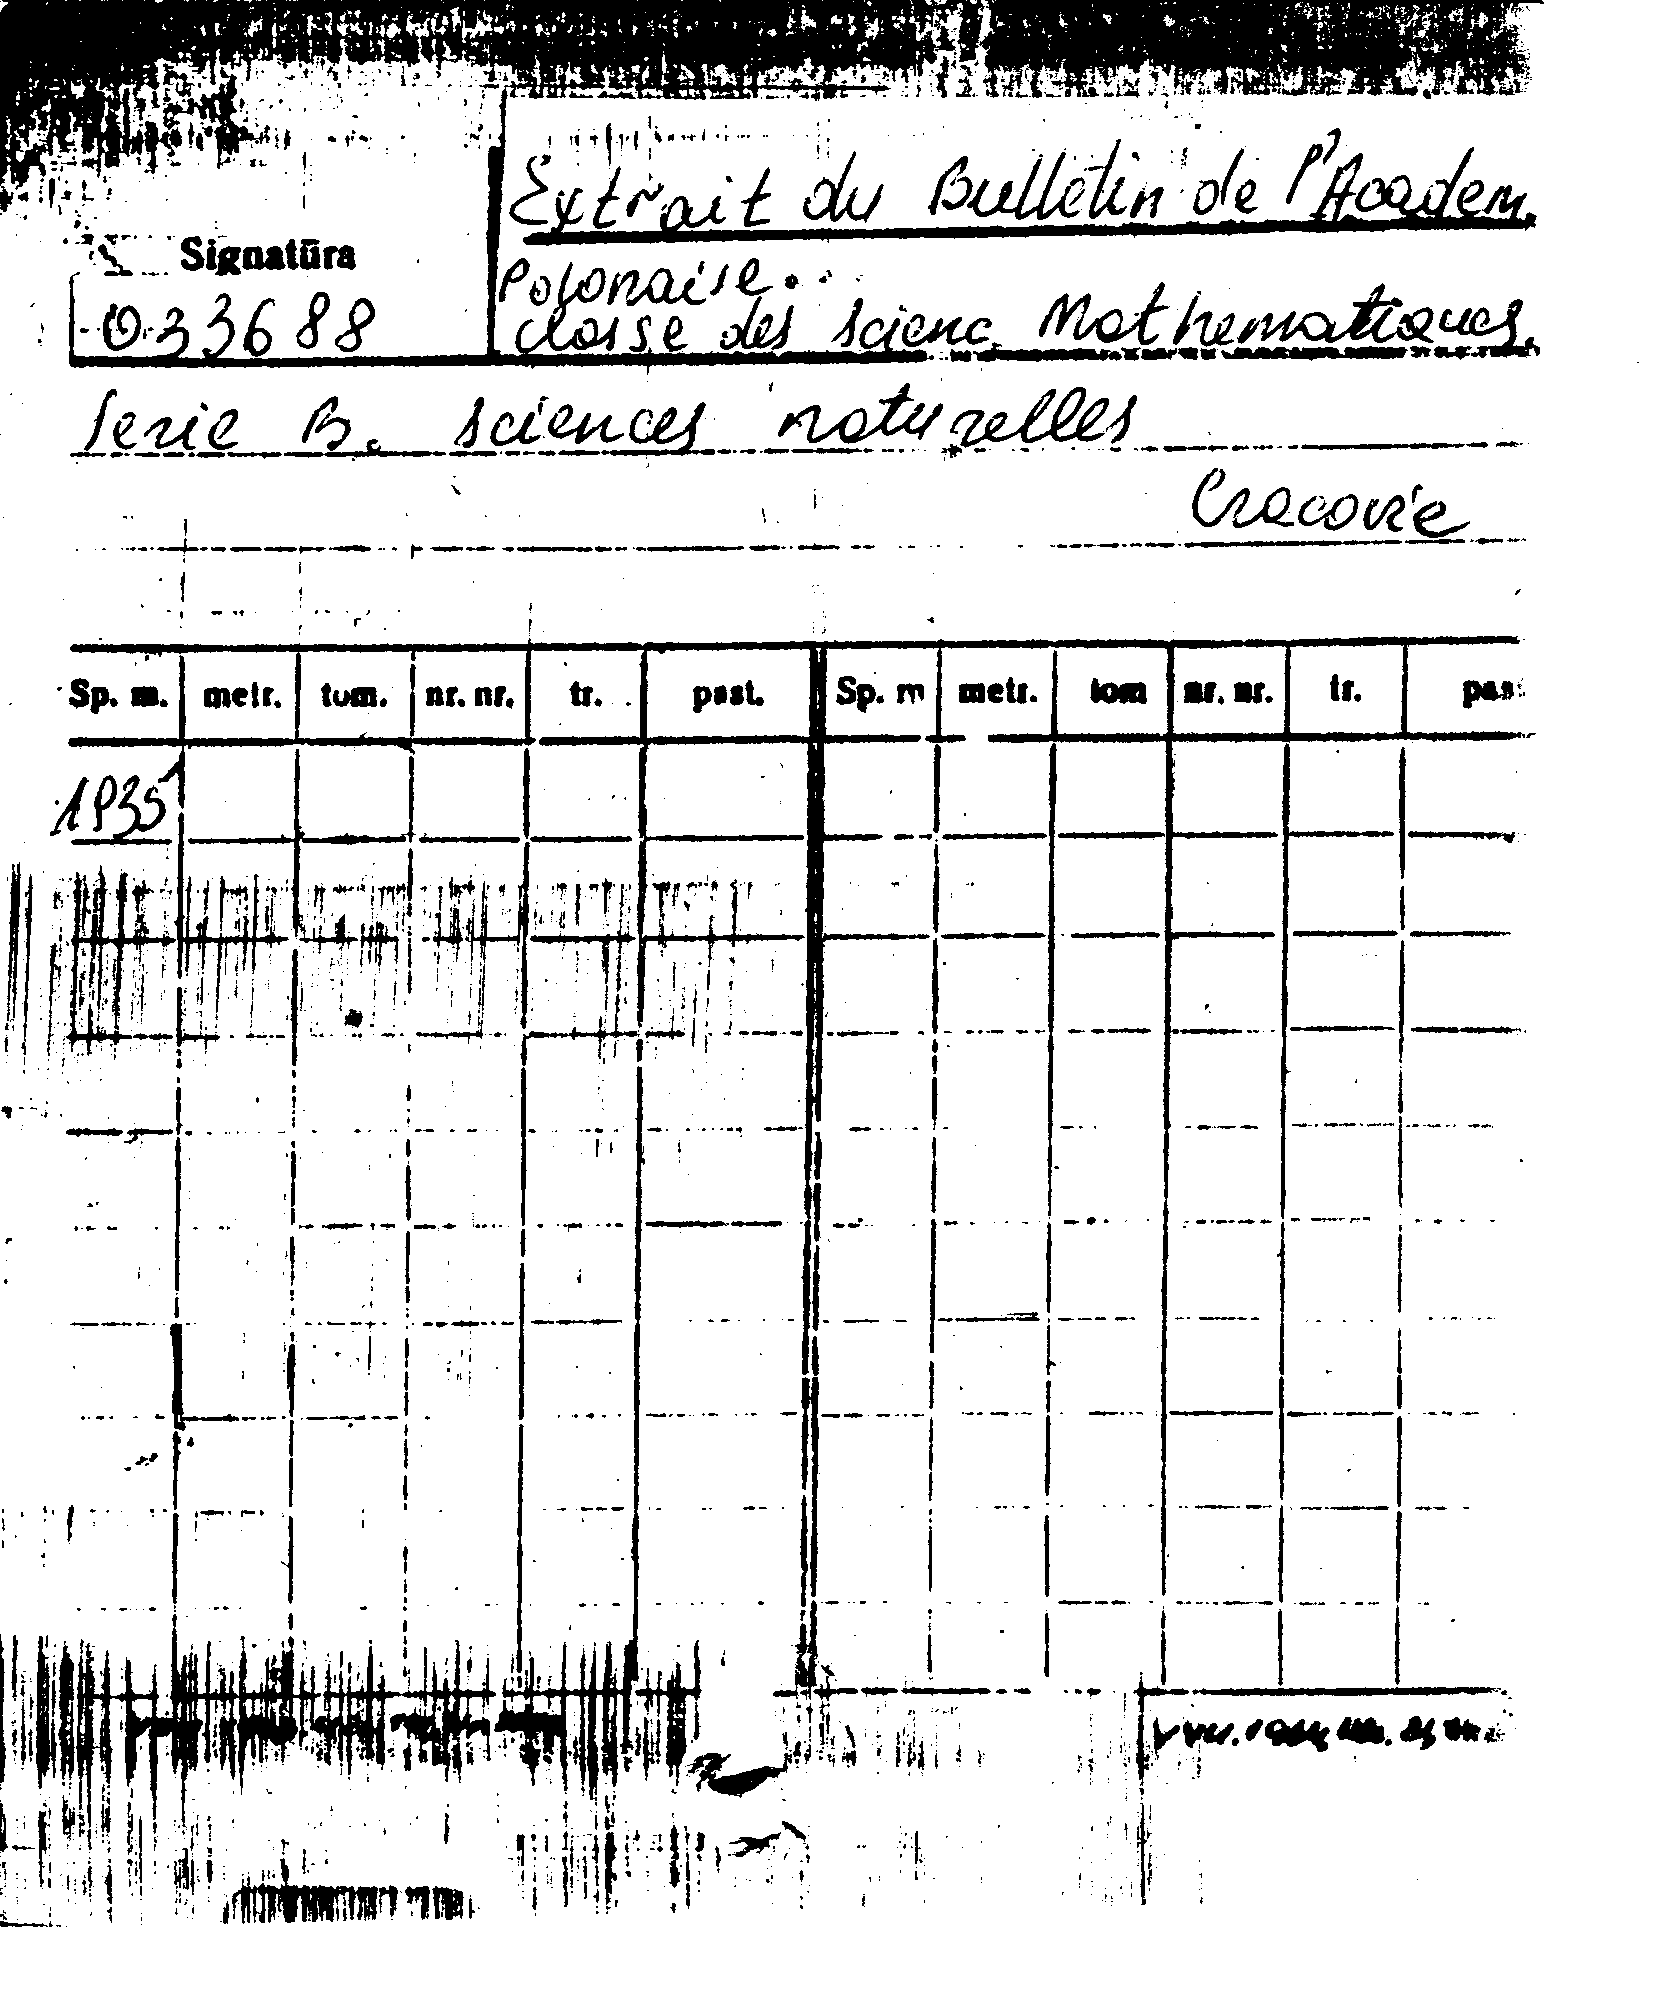 Extrait du Bulletin de l'Academ.
Signatūra
Polonaise..
033688
classe des scienc. Mathematiques.
Serie B. sciences naturelles
Cracovie
Sp. m. metr. tom. nr. nr. tr. past. Sp. m metr. tom nr. nr. tr. pas
1935